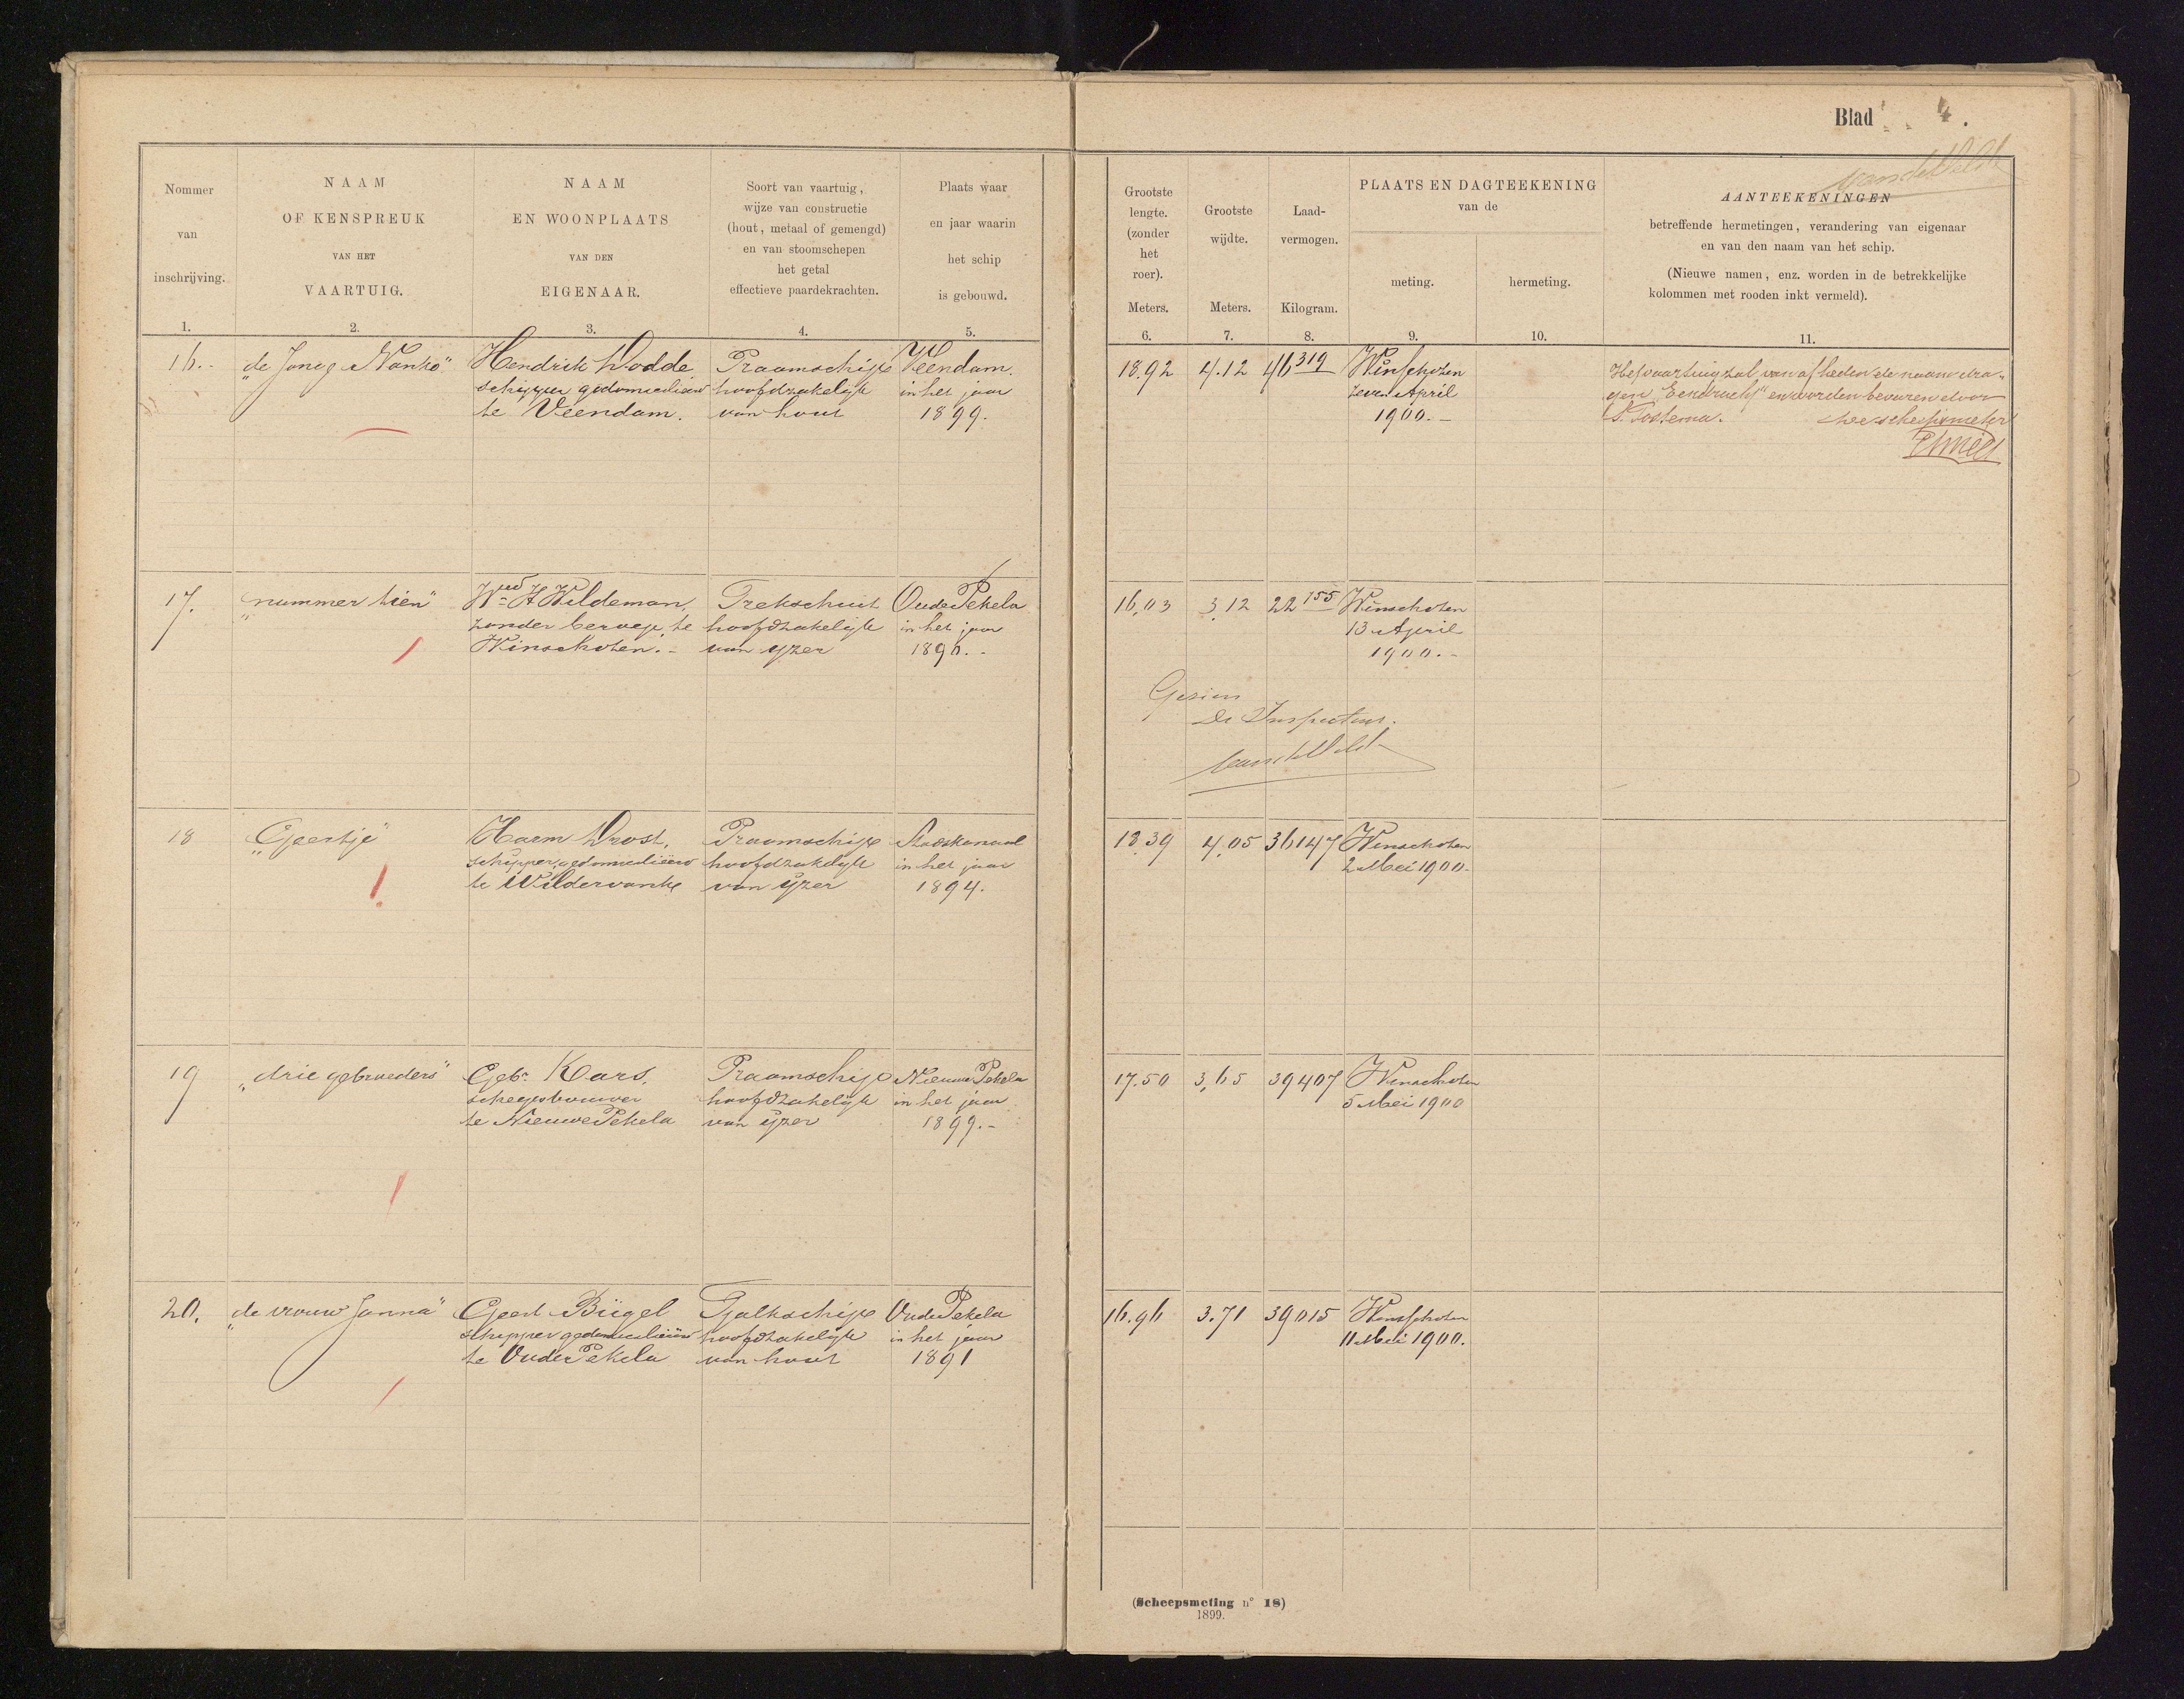 Blad 4.
van de Velde
Nommer van inschrijving.
NAAM OF KENSPREUK VAN HET VAARTUIG.
NAAM EN WOONPLAATS VAN DEN EIGENAAR.
Soort van vaartuig, wijze van constructie (hout, metaal of gemengd) en van stoomschepen het getal effectieve paardekrachten.
Plaats waar en jaar waarin het schip is gebouwd.
Grootste lengte. (zonder het roer). Meters.
Grootste wijdte. Meters.
Laad-vermogen. Kilogram.
PLAATS EN DAGTEEKENING van de
meting.
hermeting.
AANTEEKENINGEN
betreffende hermetingen, verandering van eigenaar
en van den naam van het schip.
(Nieuwe namen, enz. worden in de betrekkelijke
kolommen met rooden inkt vermeld).
1. 2. 3. 4. 5. 6. 7. 8. 9. 10. 11.
16. „de Jonge Nanko" Hendrik Dodde Praamschip Veendam. 18.92 4.12 46319 Winschoten Het vaartuig zal van af heden de naam dra-
schipper gedomicilieerd hoofdzakelijk in het jaar zeven April gen „Eendracht" en worden bevaren door
te Veendam. van hout 1899. 1900.- Tootema. De scheepsmeter
17. „nummer tien" Wed H Wildeman, Trekschuit Oude Pekela 16,03 3,12 22155 Winschoten
zonder beroep, te hoofdzakelijk in het jaar 13 April
Winschoten.- van yzer 1890.- 1900.-
Gezien
De Inspecteur.
van de Velde
18 „Geertje" Harm Drost, Praamschip Stadskanaal 18.39 4,05 36147 Winschoten
schipper, gedomicilieerd hoofdzakelijk in het jaar 2 Mei 1900.
te Wildervank van ijzer 1894.
19 „drie gebroeders" Gebr. Kars, Praamschip Nieuwe Pekela 17.50 3,65 39407 Winschoten
scheepsbouwer hoofdzakelijk in het jaar 5 Mei 1900
te Nieuwe Pekela van ijzer 1899.-
20. „de vrouw Janna" Geert Bügel Tjalkschip Oude Pekela 16.96 3.71 39015 Winschoten
schipper gedomicilieerd hoofdzakelijk in het jaar 11 Mei 1900.
te Oude Pekela van hout 1891
(Scheepsmeting n° 18)
1899.